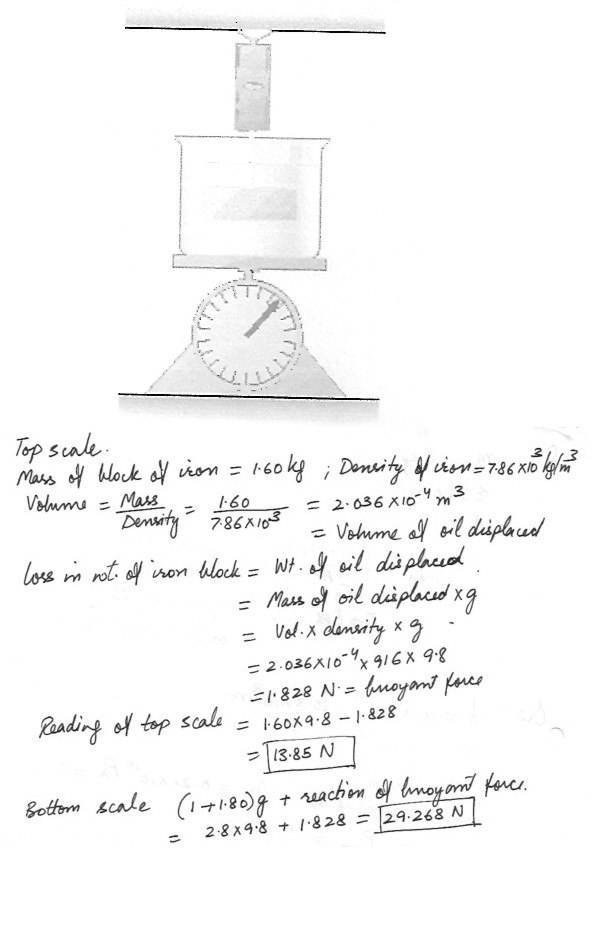 Top scale.
Mass of block of iron = 1.60 kg ; Density of iron = 7.86 x 10³ kg/m³
Volume = Mass / Density = 1.60 / 7.86 x 10³ = 2.036 x 10⁻⁴ m³
= Volume of oil displaced
Loss in wt. of iron block = Wt. of oil displaced.
= Mass of oil displaced x g
= Vol. x density x g
= 2.036 x 10⁻⁴ x 916 x 9.8
= 1.828 N = buoyant force
Reading of top scale = 1.60 x 9.8 – 1.828
= 13.85 N
Bottom scale (1 + 1.80)g + reaction of buoyant force.
= 2.8 x 9.8 + 1.828 = 29.268 N